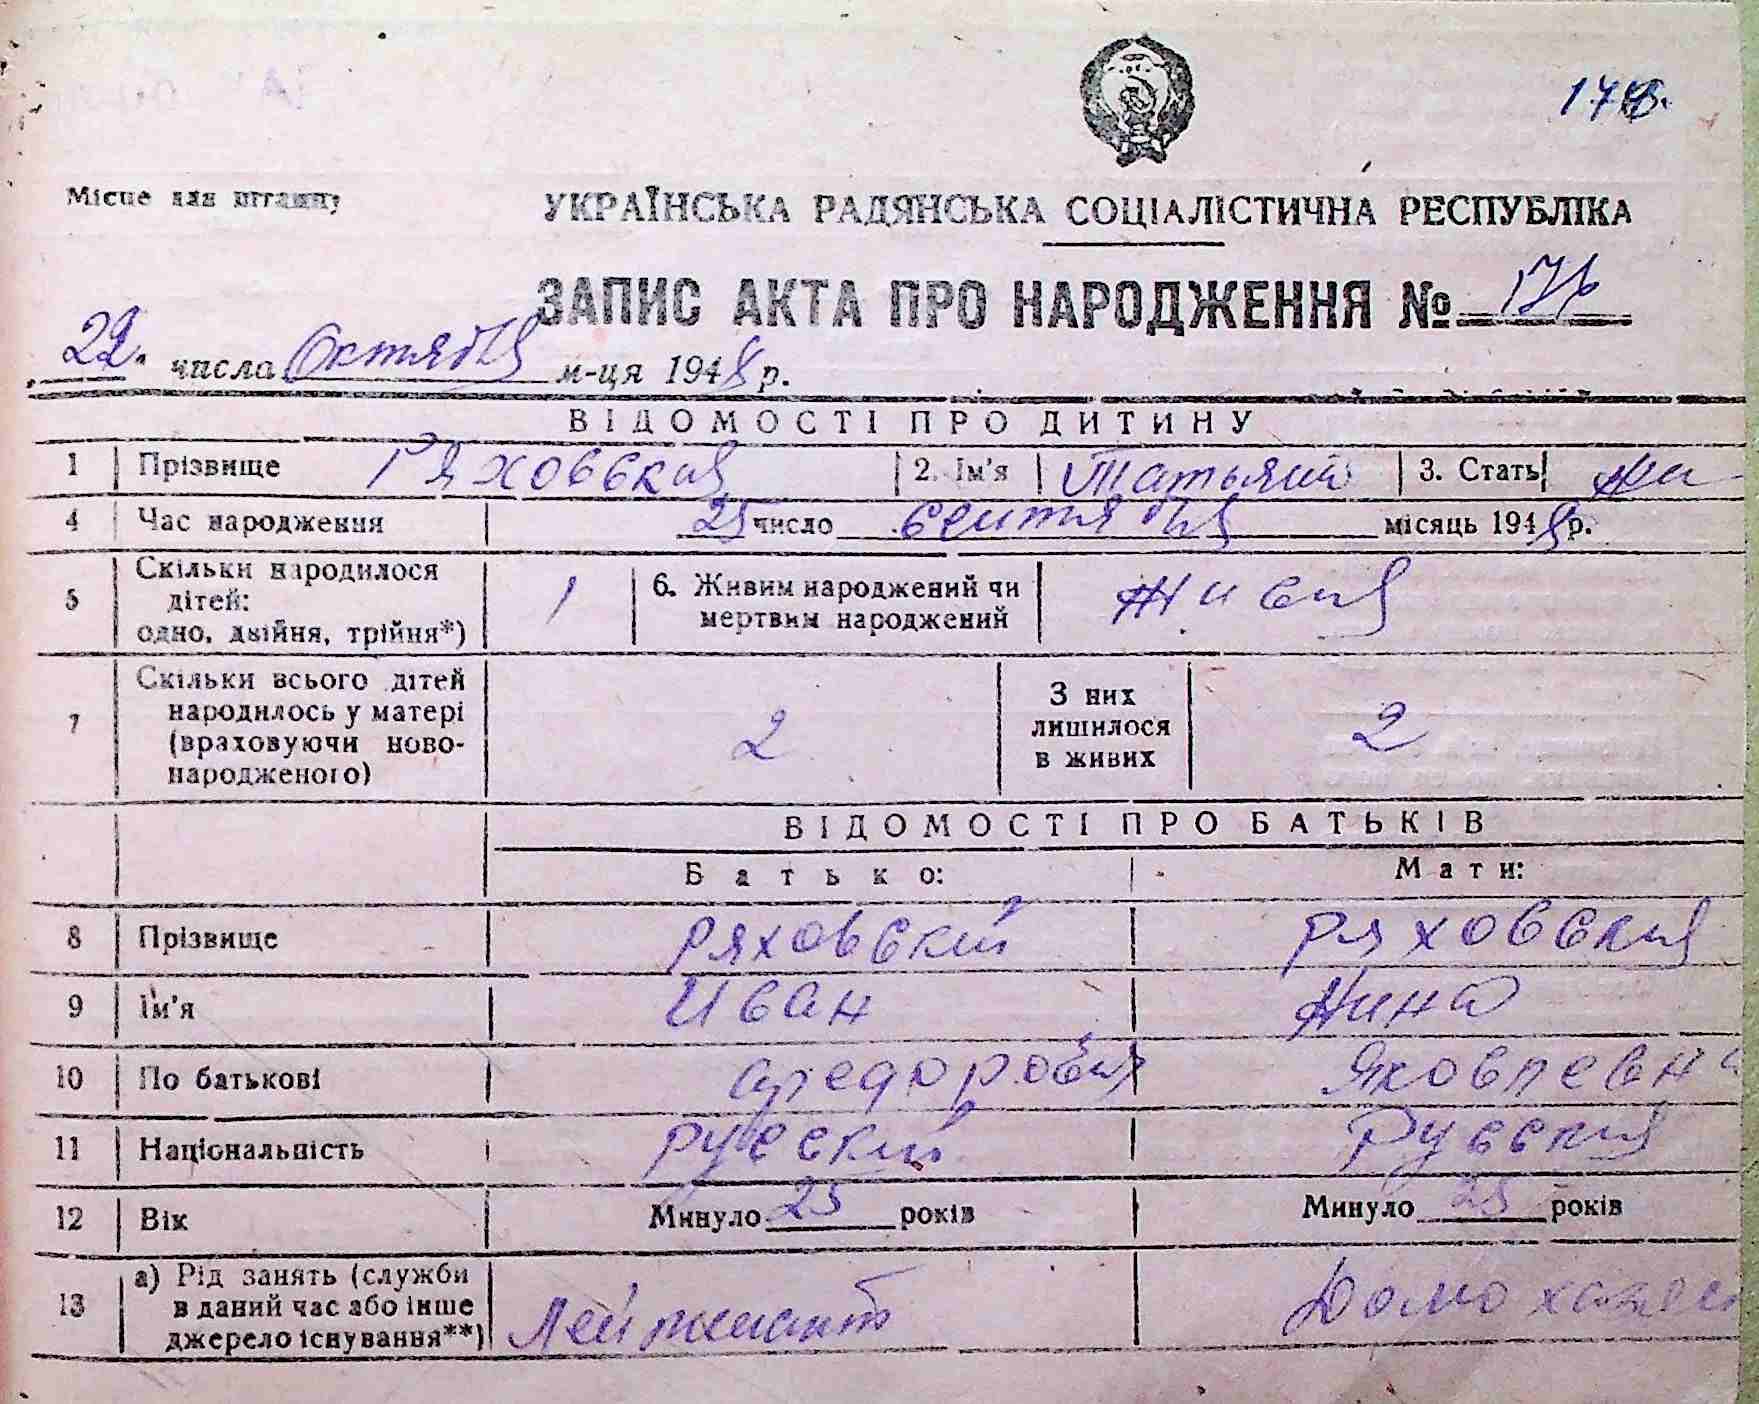 Місце для штампу
УКРАЇНСЬКА РАДЯНСЬКА СОЦІАЛІСТИЧНА РЕСПУБЛІКА
ЗАПИС АКТА ПРО НАРОДЖЕННЯ № 176
"22" числа Октября м-ця 1948 р.
ВІДОМОСТІ ПРО ДИТИНУ
1 Прізвище Ряховская 2. Ім'я Татьяна 3. Стать
4 Час народження 25 число сентября місяць 1948 р.
5 Скільки народилося дітей: одно, двійня, трійня*) 1 6. Живим народжений чи мертвим народжений Живая
7 Скільки всього дітей народилось у матері (враховуючи ново-народженого) 2 З них лишилося в живих 2
ВІДОМОСТІ ПРО БАТЬКІВ
Батько: Мати:
8 Прізвище Ряховский Ряховская
9 Ім'я Иван Нина
10 По батькові Федорович Яковлевна
11 Національність Русский Русская
12 Вік Минуло 25 років Минуло 25 років
13 а) Рід занять (служби в даний час або інше джерело існування**) Лейтенант